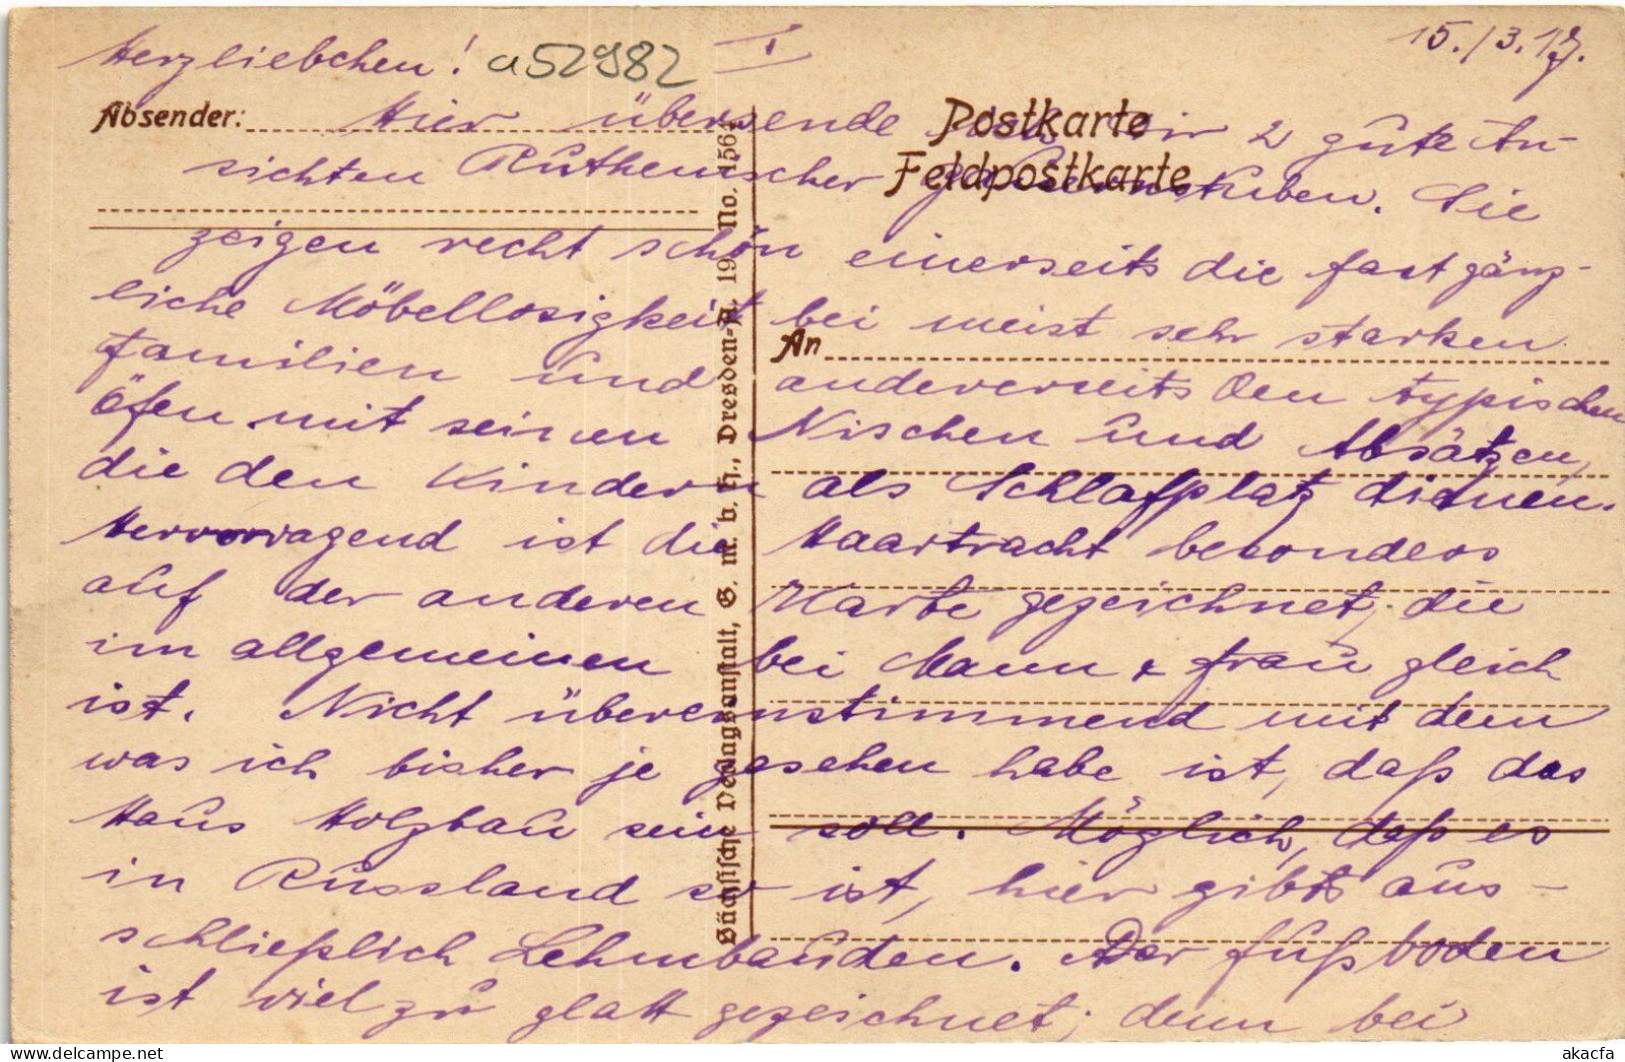 15./3.17.
Herzliebchen! a52982 I
Absender: Postkarte
Feldpostkarte
Hier übersende ich Dir 2 gute An-
sichten Ruthenischer Bauernstuben. Sie
zeigen recht schön einerseits die fast gänz-
liche Möbellosigkeit bei meist sehr starken
An
Familien und andererseits den typischen
Öfen mit seinen Nischen und Absätzen,
die den Kindern als Schlafplatz dienen.
Hervorragend ist die Haartracht besonders
auf der anderen Karte gezeichnet, die
im allgemeinen bei Mann & Frau gleich
ist. Nicht übereinstimmend mit dem
was ich bisher je gesehen habe ist, daß das
Haus Holzbau sein soll. Möglich, daß es
in Russland so ist, hier gibts aus-
schließlich Lehmbauden. Der Fußboden
ist viel zu glatt gezeichnet; denn bei
Sächsische Verlagsanstalt, G. m. b. H., Dresden-A. 19 No. 156
akacfa